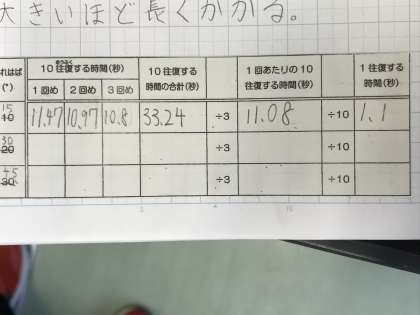 大きいほど長くかかる。
れはば(°) 10往復する時間(秒) 10往復する時間の合計(秒) 1回あたりの10往復する時間(秒) 1往復する時間(秒)
1回め 2回め 3回め
15 10 11.47 10.97 10.8 33.24 ÷3 11.08 ÷10 1.1
30 20 ÷3 ÷10
45 30 ÷3 ÷10